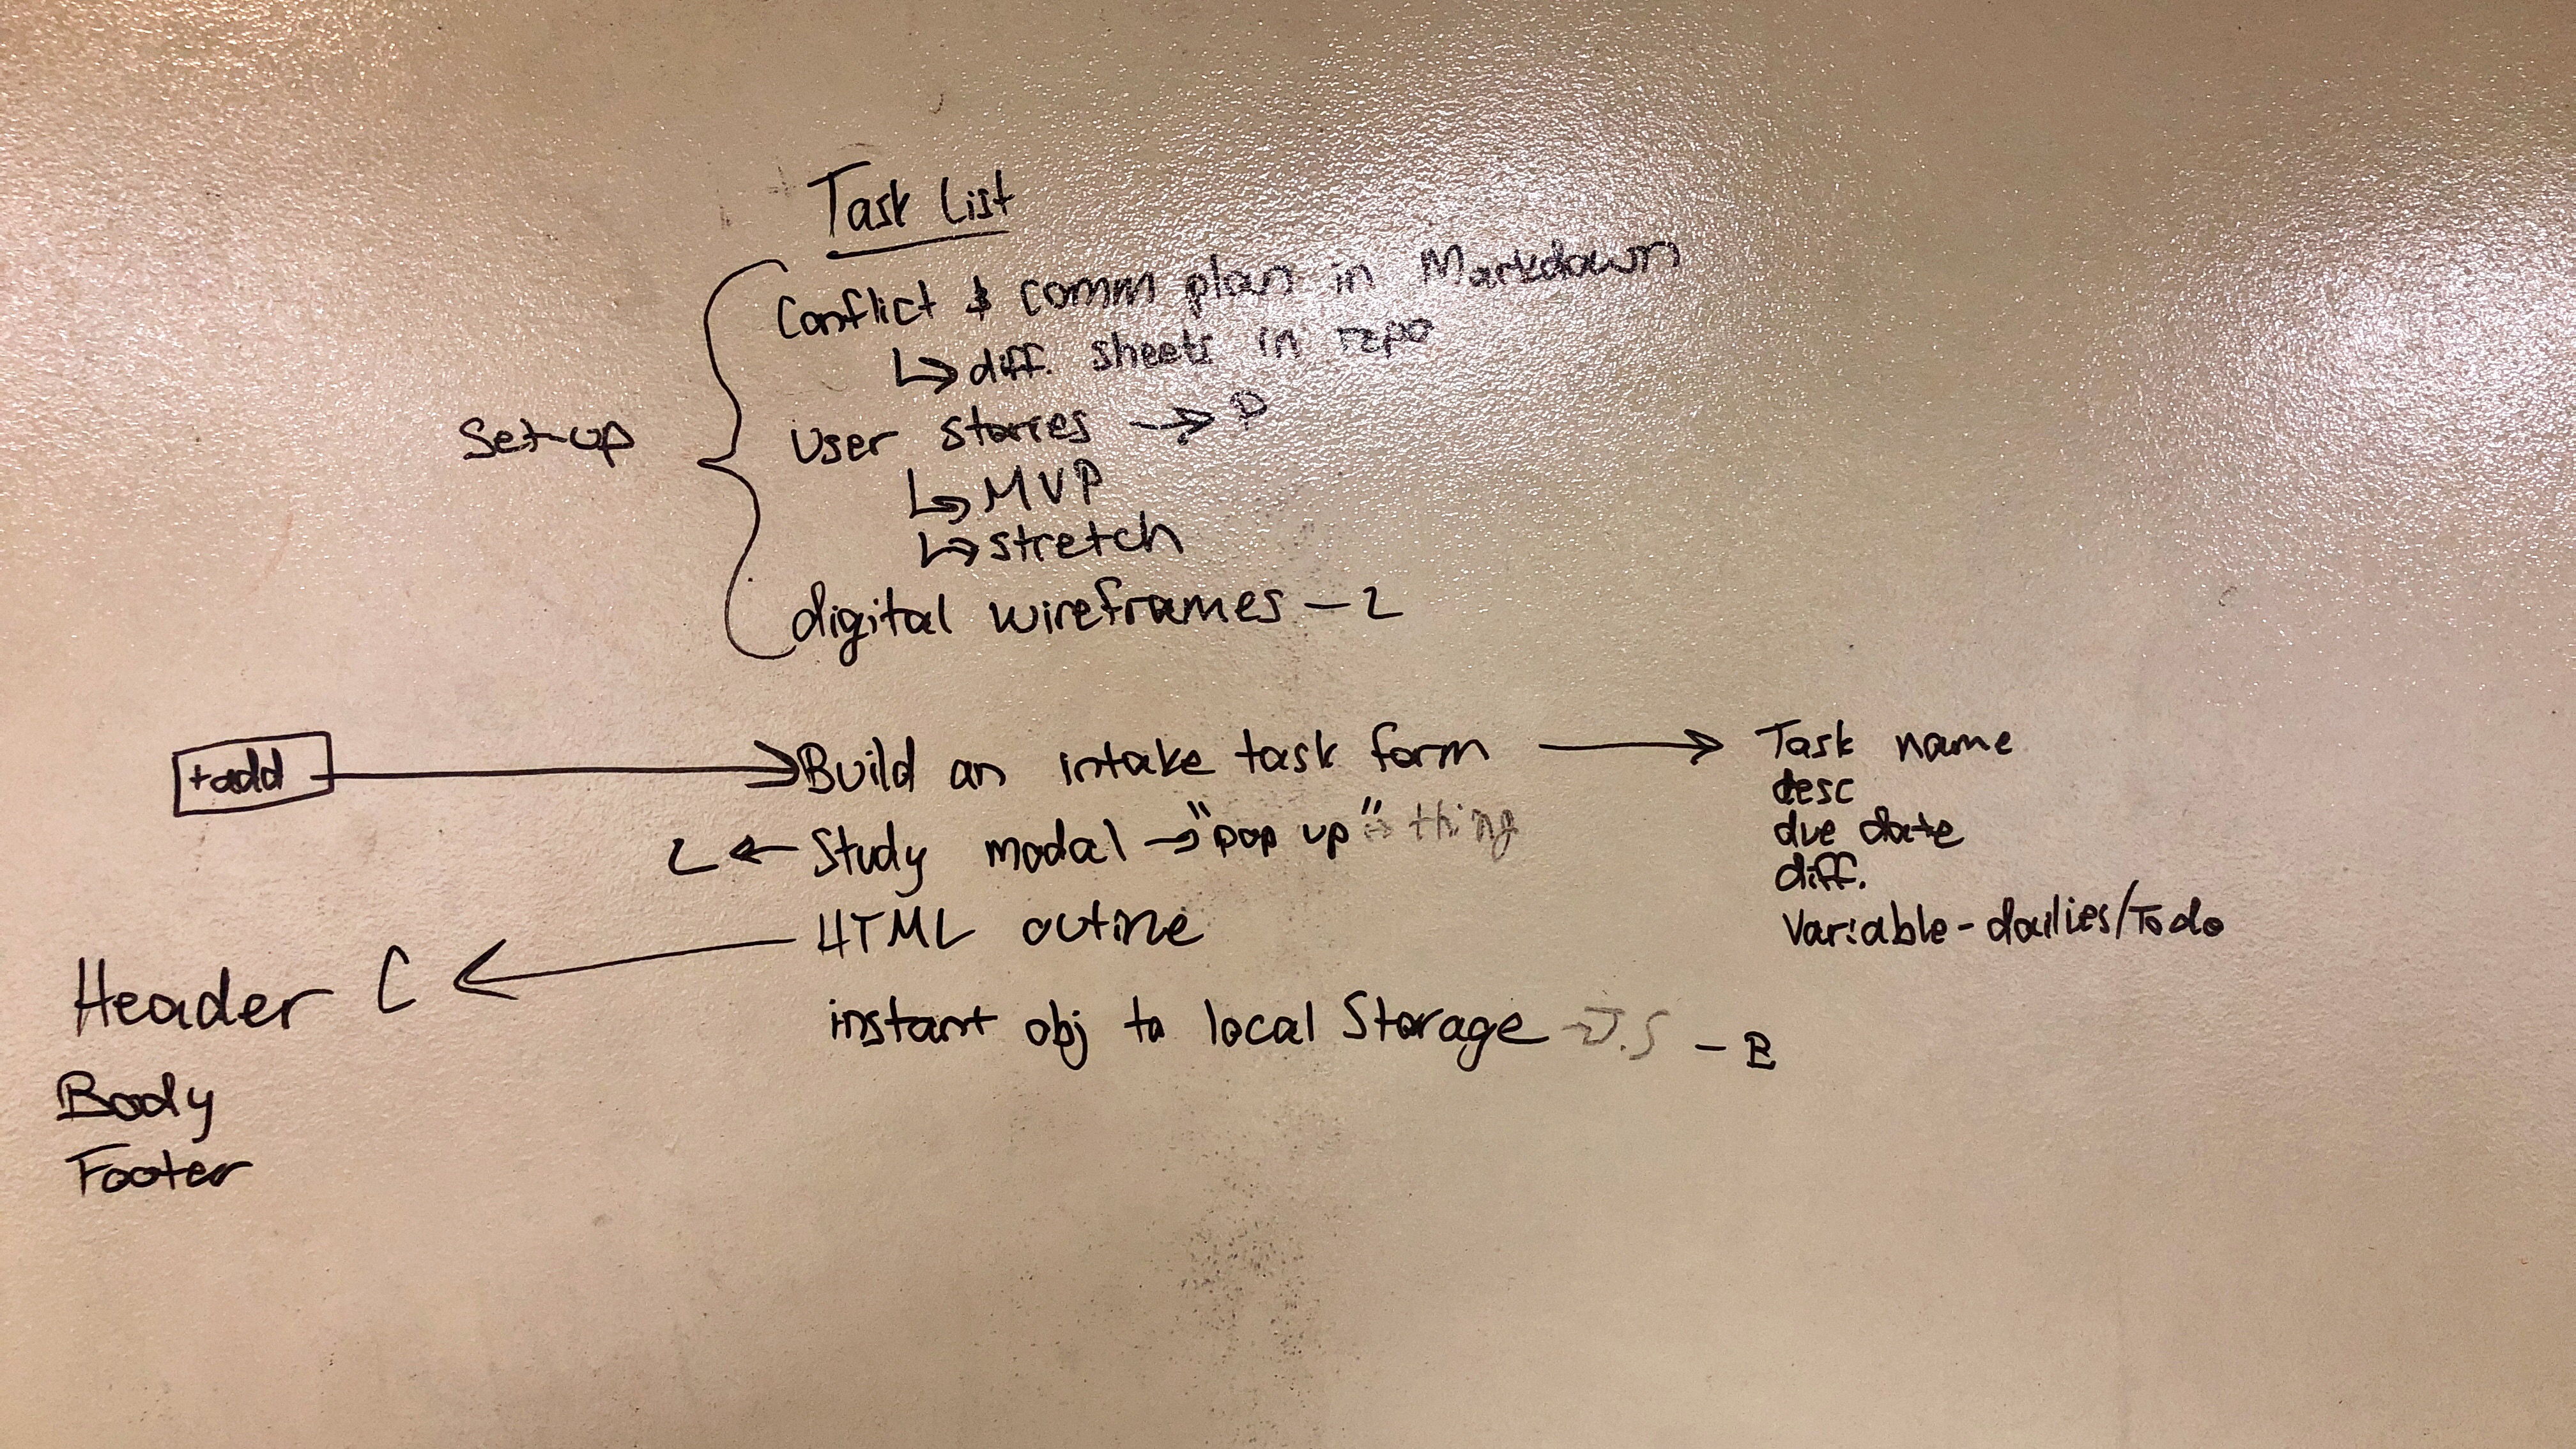 Task List
Conflict & comm plan in Markdown
↳ diff. sheets in repo
Set-up
User stories → D
↳ MVP
↳ stretch
digital wireframes - L
+add → Build an intake task form → Task name
desc
due date
diff.
Variable - dailies/Todo
L ← Study modal → "pop up" thing
HTML outine
Header C ←
Body
Footer
instant obj to local Storage → J.S - B